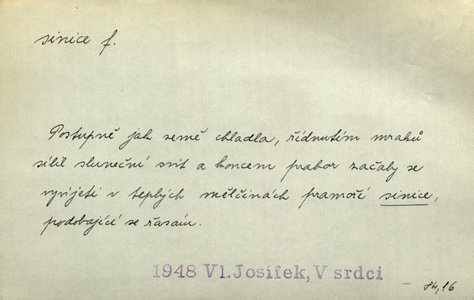 sinice f.
Postupně jak země chladla, řídnutím mraků
sílil sluneční svit a koncem prahor začaly se
vyvíjeti v teplých mělčinách pramoří sinice,
podobající se řasám.
1948 Vl. Josífek, V srdci